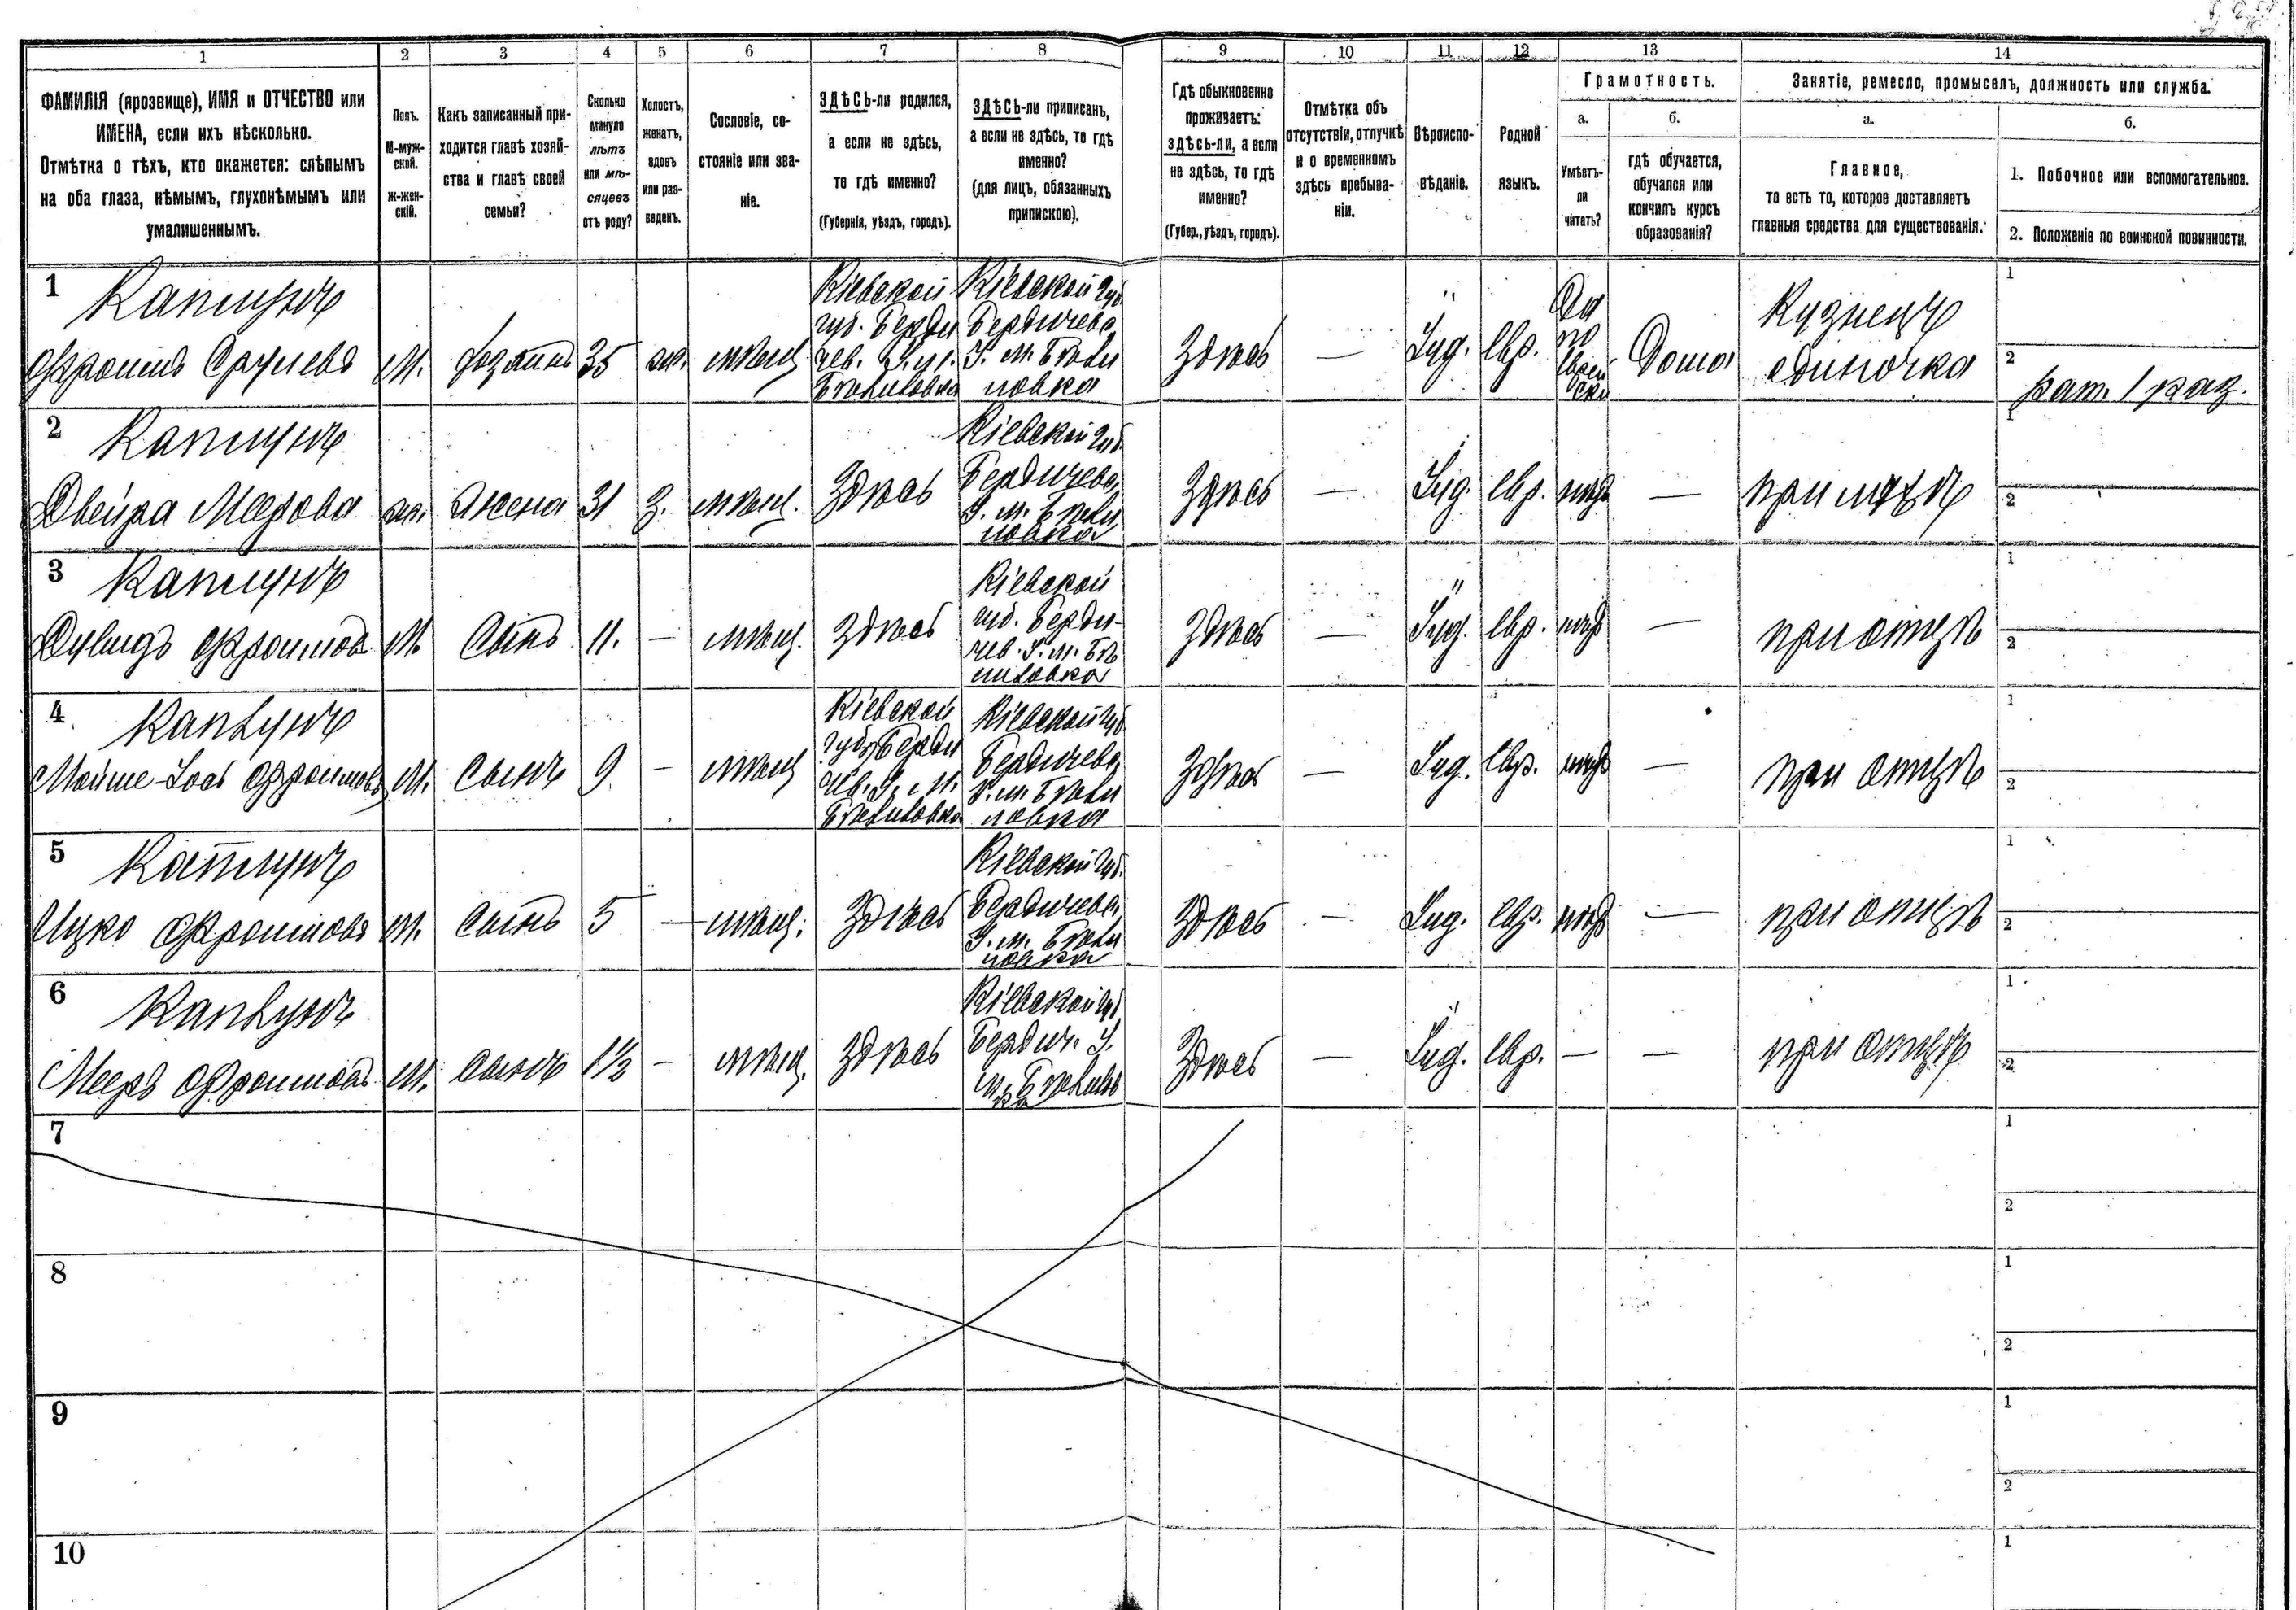 1 2 3 4 5 6 7 8 9 10 11 12 13 14
ФАМИЛІЯ (прозвище), ИМЯ и ОТЧЕСТВО или
ИМЕНА, если ихъ нѣсколько.
Отмѣтка о тѣхъ, кто окажется: слѣпымъ
на оба глаза, нѣмымъ, глухонѣмымъ или
умалишеннымъ.
Полъ.
М-муж-
ской.
ж-жен-
скій.
Какъ записанный при-
ходится главѣ хозяй-
ства и главѣ своей
семьи?
Сколько
минуло
лѣтъ
или мѣ-
сяцевъ
отъ роду?
Холостъ,
женатъ,
вдовъ
или раз-
веденъ.
Сословіе, со-
стояніе или зва-
ніе.
ЗДѢСЬ-ли родился,
а если не здѣсь,
то гдѣ именно?
(Губернія, уѣздъ, городъ).
ЗДѢСЬ-ли приписанъ,
а если не здѣсь, то гдѣ
именно?
(для лицъ, обязанныхъ
припискою).
Гдѣ обыкновенно
проживаетъ:
здѣсь-ли, а если
не здѣсь, то гдѣ
именно?
(Губер., уѣздъ, городъ).
Отмѣтка объ
отсутствіи, отлучкѣ
и о временномъ
здѣсь пребыва-
ніи.
Вѣроиспо-
вѣданіе.
Родной
языкъ.
Грамотность.
а.
Умѣетъ-
ли
читать?
б.
гдѣ обучается,
обучался или
кончилъ курсъ
образованія?
Занятіе, ремесло, промыселъ, должность или служба.
а.
Главное,
то есть то, которое доставляетъ
главныя средства для существованія.
б.
1. Побочное или вспомогательное.
2. Положеніе по воинской повинности.
1
Каплунъ
Фроимъ Срулевъ
М.
хозяинъ
35
ж.
мѣщ.
Кіевской
губ. Берди
чев. У. м.
Бѣлиловка
Кіевской губ.
Бердичевс.
У. м. Бѣли
ловка
Здѣсь
—
Іуд.
Евр.
Да
по
еврей
ски
Дома
Кузнецъ
одиночка
1
2
рат. 1 раз.
2
Каплунъ
Двейра Меерова
ж.
Жена
31
З.
мѣщ.
Здѣсь
Кіевской губ.
Бердичевс.
У. м. Бѣли
ловка
Здѣсь
—
Іуд.
Евр.
нѣтъ
—
при мужѣ
1
2
3
Каплунъ
Дувидъ Фроимовъ
М.
Сынъ
11.
—
мѣщ.
Здѣсь
Кіевской
губ. Берди-
чев. У. м. Бѣ
лиловка
Здѣсь
—
Іуд.
Евр.
нѣтъ
—
при отцѣ
1
2
4
Каплунъ
Мойше-Іось Фроимовъ
М.
сынъ
9
—
мѣщ
Кіевской
губ. Берди
чев. У. м.
Бѣлиловка
Кіевской губ.
Бердичевс.
У. м. Бѣли
ловка
Здѣсь
—
Іуд.
Евр.
нѣтъ
—
при отцѣ
1
2
5
Каплунъ
Ицко Фроимовъ
М.
Сынъ
5
—
мѣщ.
Здѣсь
Кіевской губ.
Бердичевс.
У. м. Бѣли
ловка
Здѣсь
—
Іуд.
Евр.
нѣтъ
—
при отцѣ
1
2
6
Каплунъ
Мееръ Фроимовъ
М.
сынъ
1½
—
мѣщ.
Здѣсь
Кіевской губ.
Бердич. У.
м. Бѣлилов
ка
Здѣсь
—
Іуд.
Евр.
—
—
при отцѣ
1
2
7
1
2
8
1
2
9
1
2
10
1